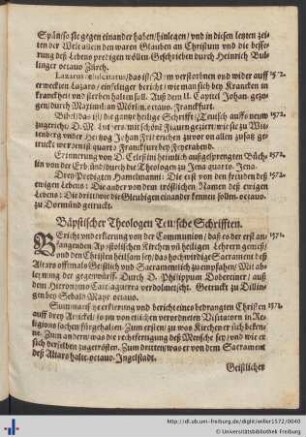 Spän/so sie gegen einander haben/hinlegen / vnd in diesen letzten zei-
ten der Welt allein den waren Glauben an Christum vnd die besse-
rung deß Lebens predigen wöllen. Geschrieben durch Heinrich Bul-
linger octauo Zürch.
das ist/ Vom verstorbnen vnd wider auff 1572.
erweckten Lazaro / ein seliger bericht / wie man sich bey Krancken in
kranckheit vnd sterben halten soll. Auß dem 11. Capitel Johan. gezo-
gen/ durch Maximil: am Mörlin, octauo. Franckfurt.
Bibel/das ist/ die gantze heilige Schrifft/Teutsch auffs neuw 1572.
zugericht/ D. M. Luthers. mit schönē Figurn gezieret/wie sie zu Wit-
tenberg vnder Hertzog Johan Friderichen zuvor on allen zusatz ge-
truckt worden/ quarto Franckfurt bey Feyerabend.
Erinnerung von D. Celestini heimlich außgesprengten Büch- 1572.
lin von der Erbsünd/durch die Theologen zu Jena quarto. Jena.
Drey Predigten Hamelmanni: Die erst von den freuden deß
ewigen Lebens: Die ander von dem tröstlichen Namen deß ewigen
Lebens: Die dritt/wie die Gleubigen einander kennen sollen. octauo.
zu Dortmünd getruckt.
Bäpstischer Theologen Teutsche Schrifften.
Bericht vnd erklerung von der Communion/ daß so der erst an- 1571.
fangenden Apostolischen Kirchen vñ heiligen Lehrern gemeß/
vnd den Christen heilsam sey/ das hochwirdige Sacrament deß
Altars offtmals Geistlich vnd Sacramentlich zu empfahen/ Mit ab-
leynung der gegenwürff. Durch D. Philippum Dobereiner/ auß
dem Hieronymo verdolmetscht. Getruckt zu Dillin-
gen bey Sebald Mayr octauo.
Summarische erklerung vnd bericht eines bedrangten Christen 1571.
auff drey Artickel/ so jm von etlichen verordneten Visitatorn in Re-
ligions sachen fürgehalten: Zum ersten/ zu was Kirchen er sich beken-
ne. Zum andern/ was die rechtfertigung deß Menschen sey / vnd wie er
sich derselben zugetrösten. Zum dritten/ was er von dem Sacrament
deß Altars halte. octauo. Ingolstadt.
Geistlicher
http://dl.ub.uni-freiburg.de/diglit/willer1572/0040
© Universitätsbibliothek Freiburg